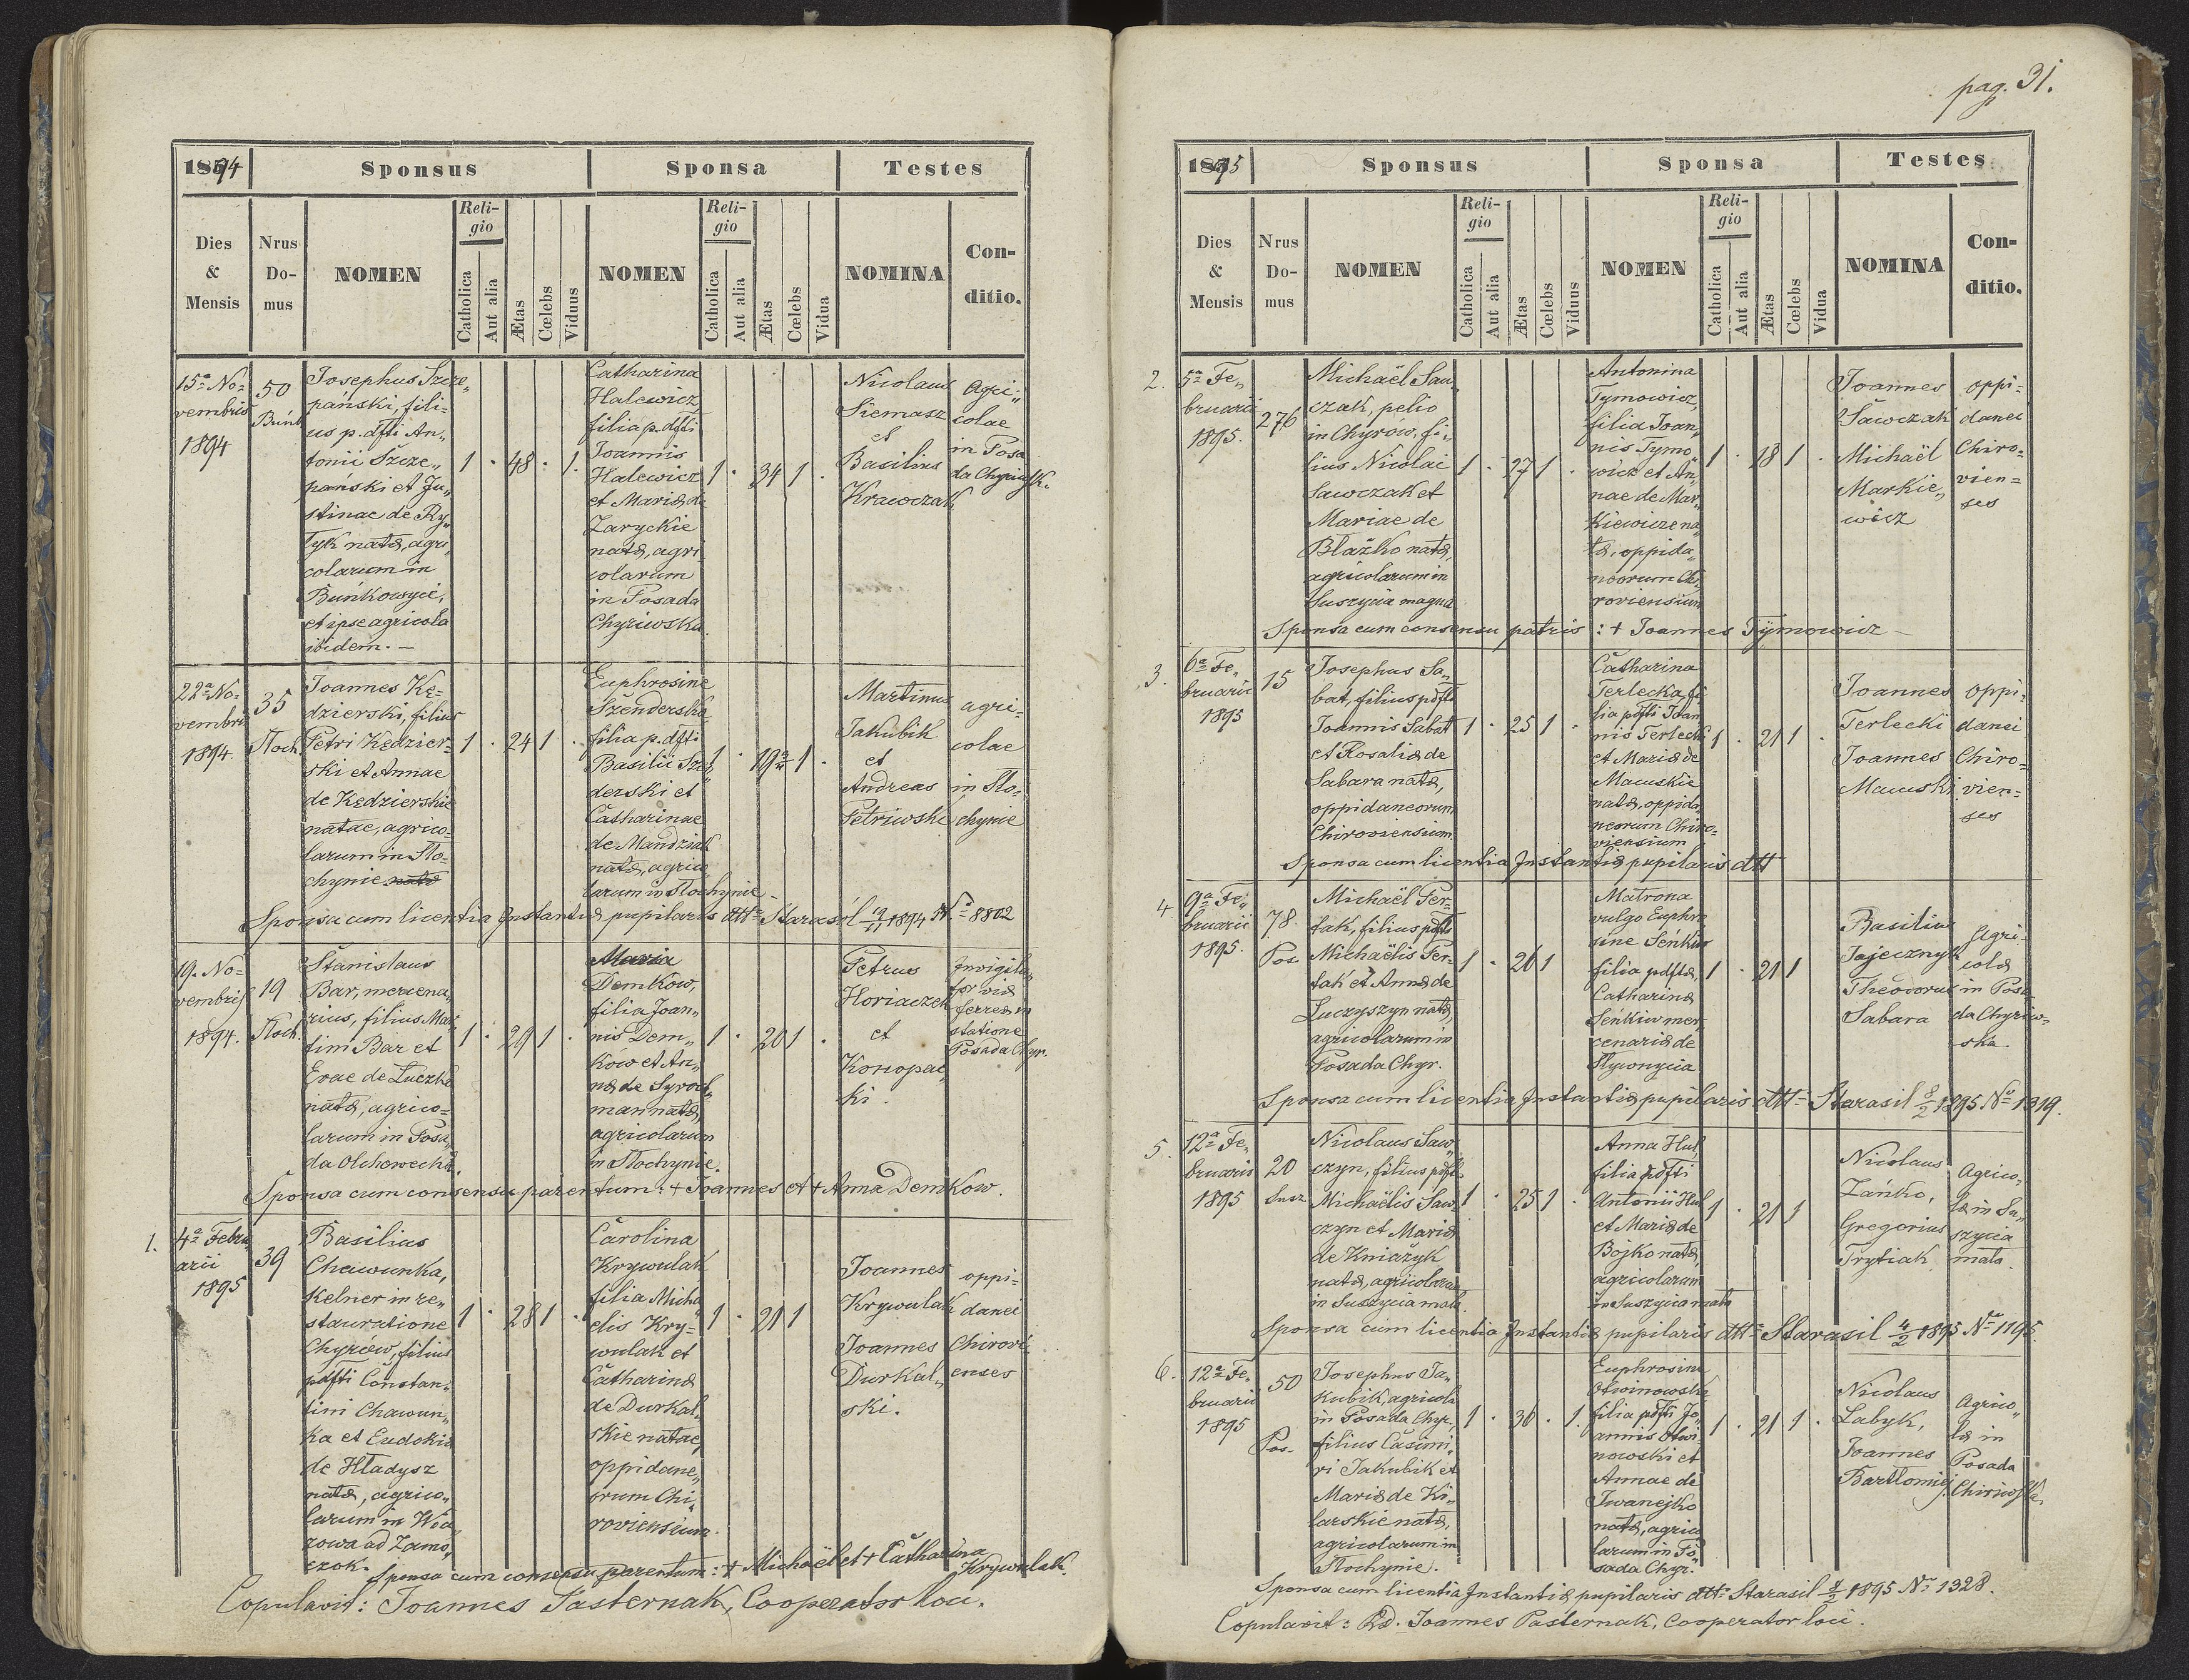 pag. 31.
1894
Sponsus
Sponsa
Testes
Dies & Mensis
Nrus Do- mus
NOMEN
Reli- gio
Catholica
Aut alia
Ætas
Cœlebs
Viduus
NOMEN
Reli- gio
Catholica
Aut alia
Ætas
Cœlebs
Vidua
NOMINA
Con- ditio.
15a No-
vembris
1894
50
Josephus Szcze„
pański, fili-
us p. dfti An„
tonii Szcze„
pański et Ju„
stinae de Ry„
Tyk natæ, agri„
colarum in
Buńkowyie,
et ipse agricola
ibidem. —
1 · 48 · 1.
Catharina
Halewicz,
filia p. dfti
Joannis
Halewicz
et Mariæ de
Zaryckie
natæ, agri
colarum
in Posada
Chyriwska.
1 · 34 1 ·
Nicolaus
Siemasz
et
Basilius
Krawczak
Agri„
colae
in Posa
da Chyriwsk.
22a No-
vembris
1894.
35
Stoch.
Joannes Kę-
dzierski, filius
Petri Kędzier-
ski et Annae
de Kędzierskie
natae, agrico-
larum in Sto-
chynie
1 · 24 1 ·
Euphrosine
Szenderska
filia p. dfti
Basilii Szen
derski et
Catharinae
de Mandziak
natæ, agrico
larum in Stochynie
1 · 19 1 ·
Martinus
Jakubik
et
Andreas
Petriwski
agri-
colae
in Sto-
chynie
Sponsa cum licentia Instantiæ pupilaris dtto Starasól 19/11 1894 No 8802
19. No-
vembris
1894.
19
Stoch.
Stanislaus
Bar, mercena„
rius, filius Mar„
tini Bar et
Evae de Luczko
natæ, agrico-
larum in Posa„
da Olchowecka.
1 · 29 1 ·
Maria
Demkow,
filia Joan„
nis Dem„
kow et An„
næ de Syroch„
man natæ,
agricolarum
in Stochynie.
1 · 20 1 ·
Petrus
Horiaczek
et
Konopac
ki.
Invigila„
tor viæ
ferreæ in
statione
Posada Chyr.
Sponsa cum consensu parentum: + Joannes et + Anna Demkow.
1.
4a Febru
arii
1895
39
Basilius
Chawunka,
kelner in re„
stauratione
Chyrów, filius
pdfti Constan„
tini Chawun„
ka et Eudokiæ
de Hładysz
natæ, agrico„
larum in Wol
zowa ad Zamo„
czok.
1 · 28 1 ·
Carolina
Krywulak
filia Micha
elis Kry=
wulak et
Catharinæ
de Durkal„
skie natae,
oppidane„
orum Chi„
roviensium.
1 · 21 1
Joannes
Krywulak
Joannes
Durkal„
ski.
oppi=
danei
Chirovi„
enses
Sponsa cum consensu parentum: + Michaël et + Catharina Krywulak.
Copulavit: Joannes Pasternak, Cooperator loci.
1895
Sponsus
Sponsa
Testes
Dies & Mensis
Nrus Do- mus
NOMEN
Reli- gio
Catholica
Aut alia
Ætas
Cœlebs
Viduus
NOMEN
Reli- gio
Catholica
Aut alia
Ætas
Cœlebs
Vidua
NOMINA
Con- ditio.
2.
5a Fe„
bruarii
1895.
276
Michaël Sau„
czak, pelio
in Chyrow, fi„
lius Nicolai
Sawczak et
Mariae de
Błażko natæ,
agricolarum in
Suszycia magna
1 · 27 1 ·
Antonina
Tymowicz,
filia Joan„
nis Tymo„
wicz et An„
nae de Mar„
kiewicze na„
tæ, oppida„
neorum Chi„
roviensium
1 · 18 1 ·
Joannes
Sawczak
Michaël
Markie„
wicz
oppi-
danei
Chiro=
vien=
ses
Sponsa cum consensu patris: + Joannes Tymowicz —
3.
6a Fe„
bruarii
1895
15
Josephus Sa„
bat, filius pdfti
Joannis Sabat
et Rosaliæ de
Sabara natæ,
oppidaneorum
Chiroviensium.
1 · 25 1 ·
Catharina
Terlecka, fi
lia pdfti Joan
nis Terlecki
et Mariæ de
Macuskie
natæ, oppida
neorum Chiro=
viensium
1 · 21 1 ·
Joannes
Terlecki
Joannes
Macuski
oppi-
danei
Chiro=
vien=
ses
Sponsa cum licentia Instantiæ pupilaris dtt
4.
9a Fe„
bruarii
1895.
78.
Pos.
Michaël Fer-
tak, filius pdfti
Michaëlis Fer-
tak et Annæ de
Luczyszyn natæ,
agricolarum in
Posada Chyr.
1 · 26 1
Matrona
vulgo Euphro
sine Seńkiw
filia pdftæ,
Catharinæ
Seńkiw mer„
cenariæ de
Slywnycia
1 · 21 1
Basilius
Jajecznyk
Theodorus
Sabara
Agri-
colæ
in Posa
da Chyriw=
ska
Sponsa cum licentia Instantiæ pupilaris dtto Starasil 8/2 1895 No 1319.
5.
12a Fe„
bruarii
1895
20
Susz
Nicolaus Saw„
czyn, filius pdfti
Michaëlis Saw„
czyn et Mariæ
de Kniażyk
natæ, agricolarum
in Suszycia mała.
1 · 25 1 ·
Anna Hul,
filia pdfti
Antonii Hul
et Mariæ de
Bojko natæ,
agricolarum
in Suszycia mała
1 · 21 1
Nicolaus
Zańko,
Gregorius
Trytiak
Agrico„
læ in Su„
szycia
mała.
Sponsa cum licentia Instantiæ pupilaris dtto Starasil 4/2 1895 No 1195.
6.
12a Fe„
bruarii
1895
50
Pos.
Josephus Ja„
kubik, agricola
in Posada Chyr.,
filius Casimi„
ri Jakubik et
Mariæ de Ki„
larskie natæ,
agricolarum in
Stochynie.
1 · 36 · 1.
Euphrosine
Otwinowska
filia pdfti Jo„
annis Otwi
nowski et
Annae de
Iwanejko
natæ, agrico
larum in Po„
sada Chyr.
1 · 21 1 ·
Nicolaus
Labyk,
Joannes
Bartlomiej.
Agrico„
læ in
Posada
Chiriwska.
Sponsa cum licentia Instantiæ pupilaris dtto Starasil 8/2 1895 No 1328.
Copulavit: Rd. Joannes Pasternak, Cooperator loci.